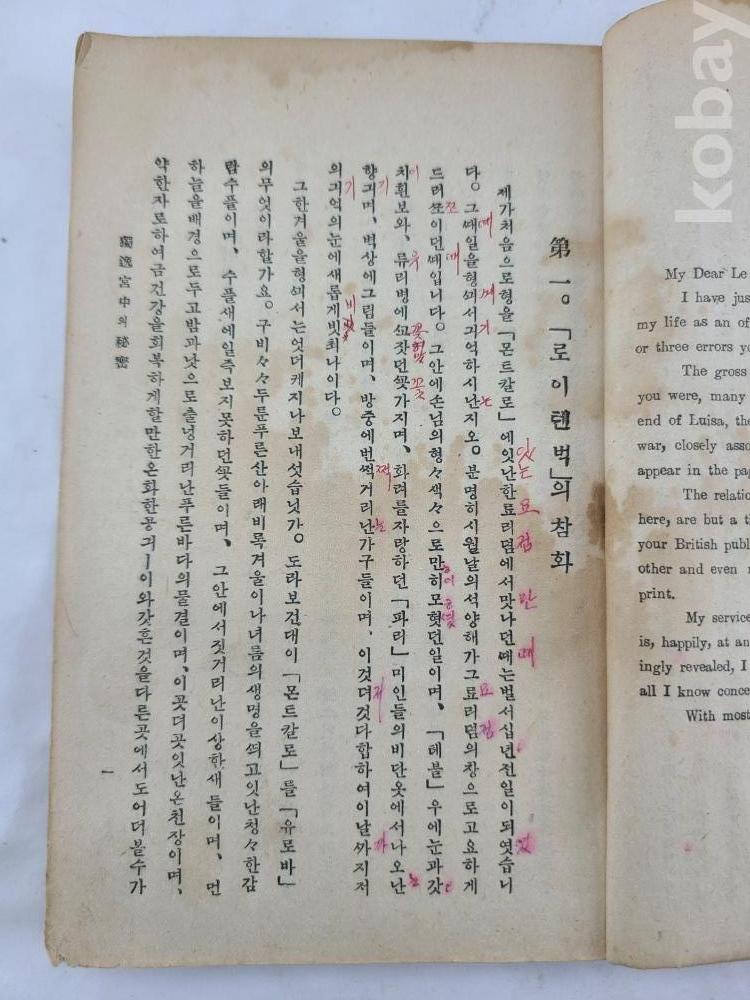 第一。「로이텐벅」의참화
제가처음으로형을「몬트칼로」에잇난한료리뎜에서맛나던ᄯᅢ는벌서십년전일이되엿습니
있는 요점 만 때 었
다。그ᄯᅢ일을형ᄭᅴ서긔억하시난지오。분명히시월날의석양해가그료리뎜의창으로고요하게
때 께 기 는 요 점
드러ᄶᅩ이던ᄯᅢ입니다。그안에손님의형々색々으로만히모혓던일이며、「테블」우에눈과갓
쪼 때
치흰보와、류리병에ᄭᅩ잣던ᄭᅩᆺ가지며、화려를자랑하던「파리」미인들의비단옷에서나오난
이 유 꽃 는
향긔며、벽상에그림들이며、방중에번ᄶᅥᆨ거리난가구들이며、이것뎌것다합하여이날ᄭᅡ지저
기 쩍 는 저 까
의긔억의눈에새롭게빗최나이다。
기 비
그한겨울을형ᄭᅴ서는엇더케지나보내섯습닛가。도라보건대이「몬트칼로」를「유로바」
의무엇이라할가요。구비々々두룬푸른산아래비록겨울이나녀름의생명을ᄯᅴ고잇난청々한감
람수풀이며、수풀새에일즉보지못하던ᄭᅩᆺ들이며、그안에서짓거리난이상한새들이며、먼
하늘을배경으로두고밤과낫으로출넝거리난푸른바다의물결이며、이곳뎌곳잇난온천장이며、
약한자로하여금건강을회복하게할만한온화한공긔ㅣ이와갓흔것을다른곳에서도어더볼수가
獨逸宮中의秘密
一
My Dear Le
I have jus
my life as an of
or three errors yo
The gross
you were, many
end of Luisa, the
war, closely asso
appear in the pag
The relatio
here, are but a t
your British publ
other and even
print.
My service
is, happily, at an
ingly revealed, I
all I know conce
With most
kobay